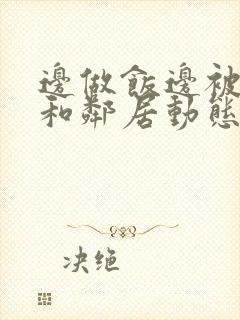 邊做飯邊被
和鄰居動態
决绝